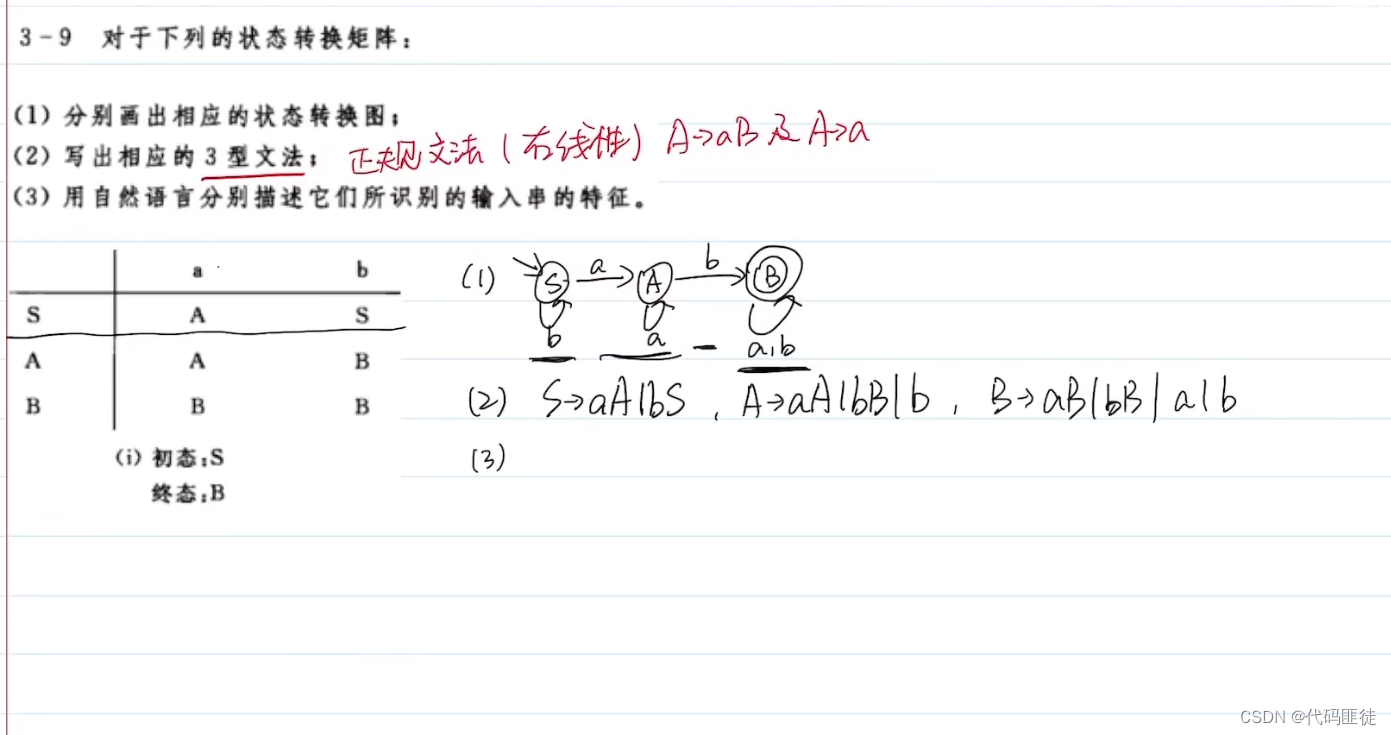 3-9 对于下列的状态转换矩阵:
(1) 分别画出相应的状态转换图;
(2) 写出相应的3型文法; 正规文法(右线性) A→aB 及 A→a
(3) 用自然语言分别描述它们所识别的输入串的特征。
a b
S A S
A A B
B B B
(i) 初态:S
终态:B
(1) S a A b B
b a a,b
(2) S→aA|bS , A→aA|bB|b , B→aB|bB|a|b
(3)
CSDN @代码匪徒